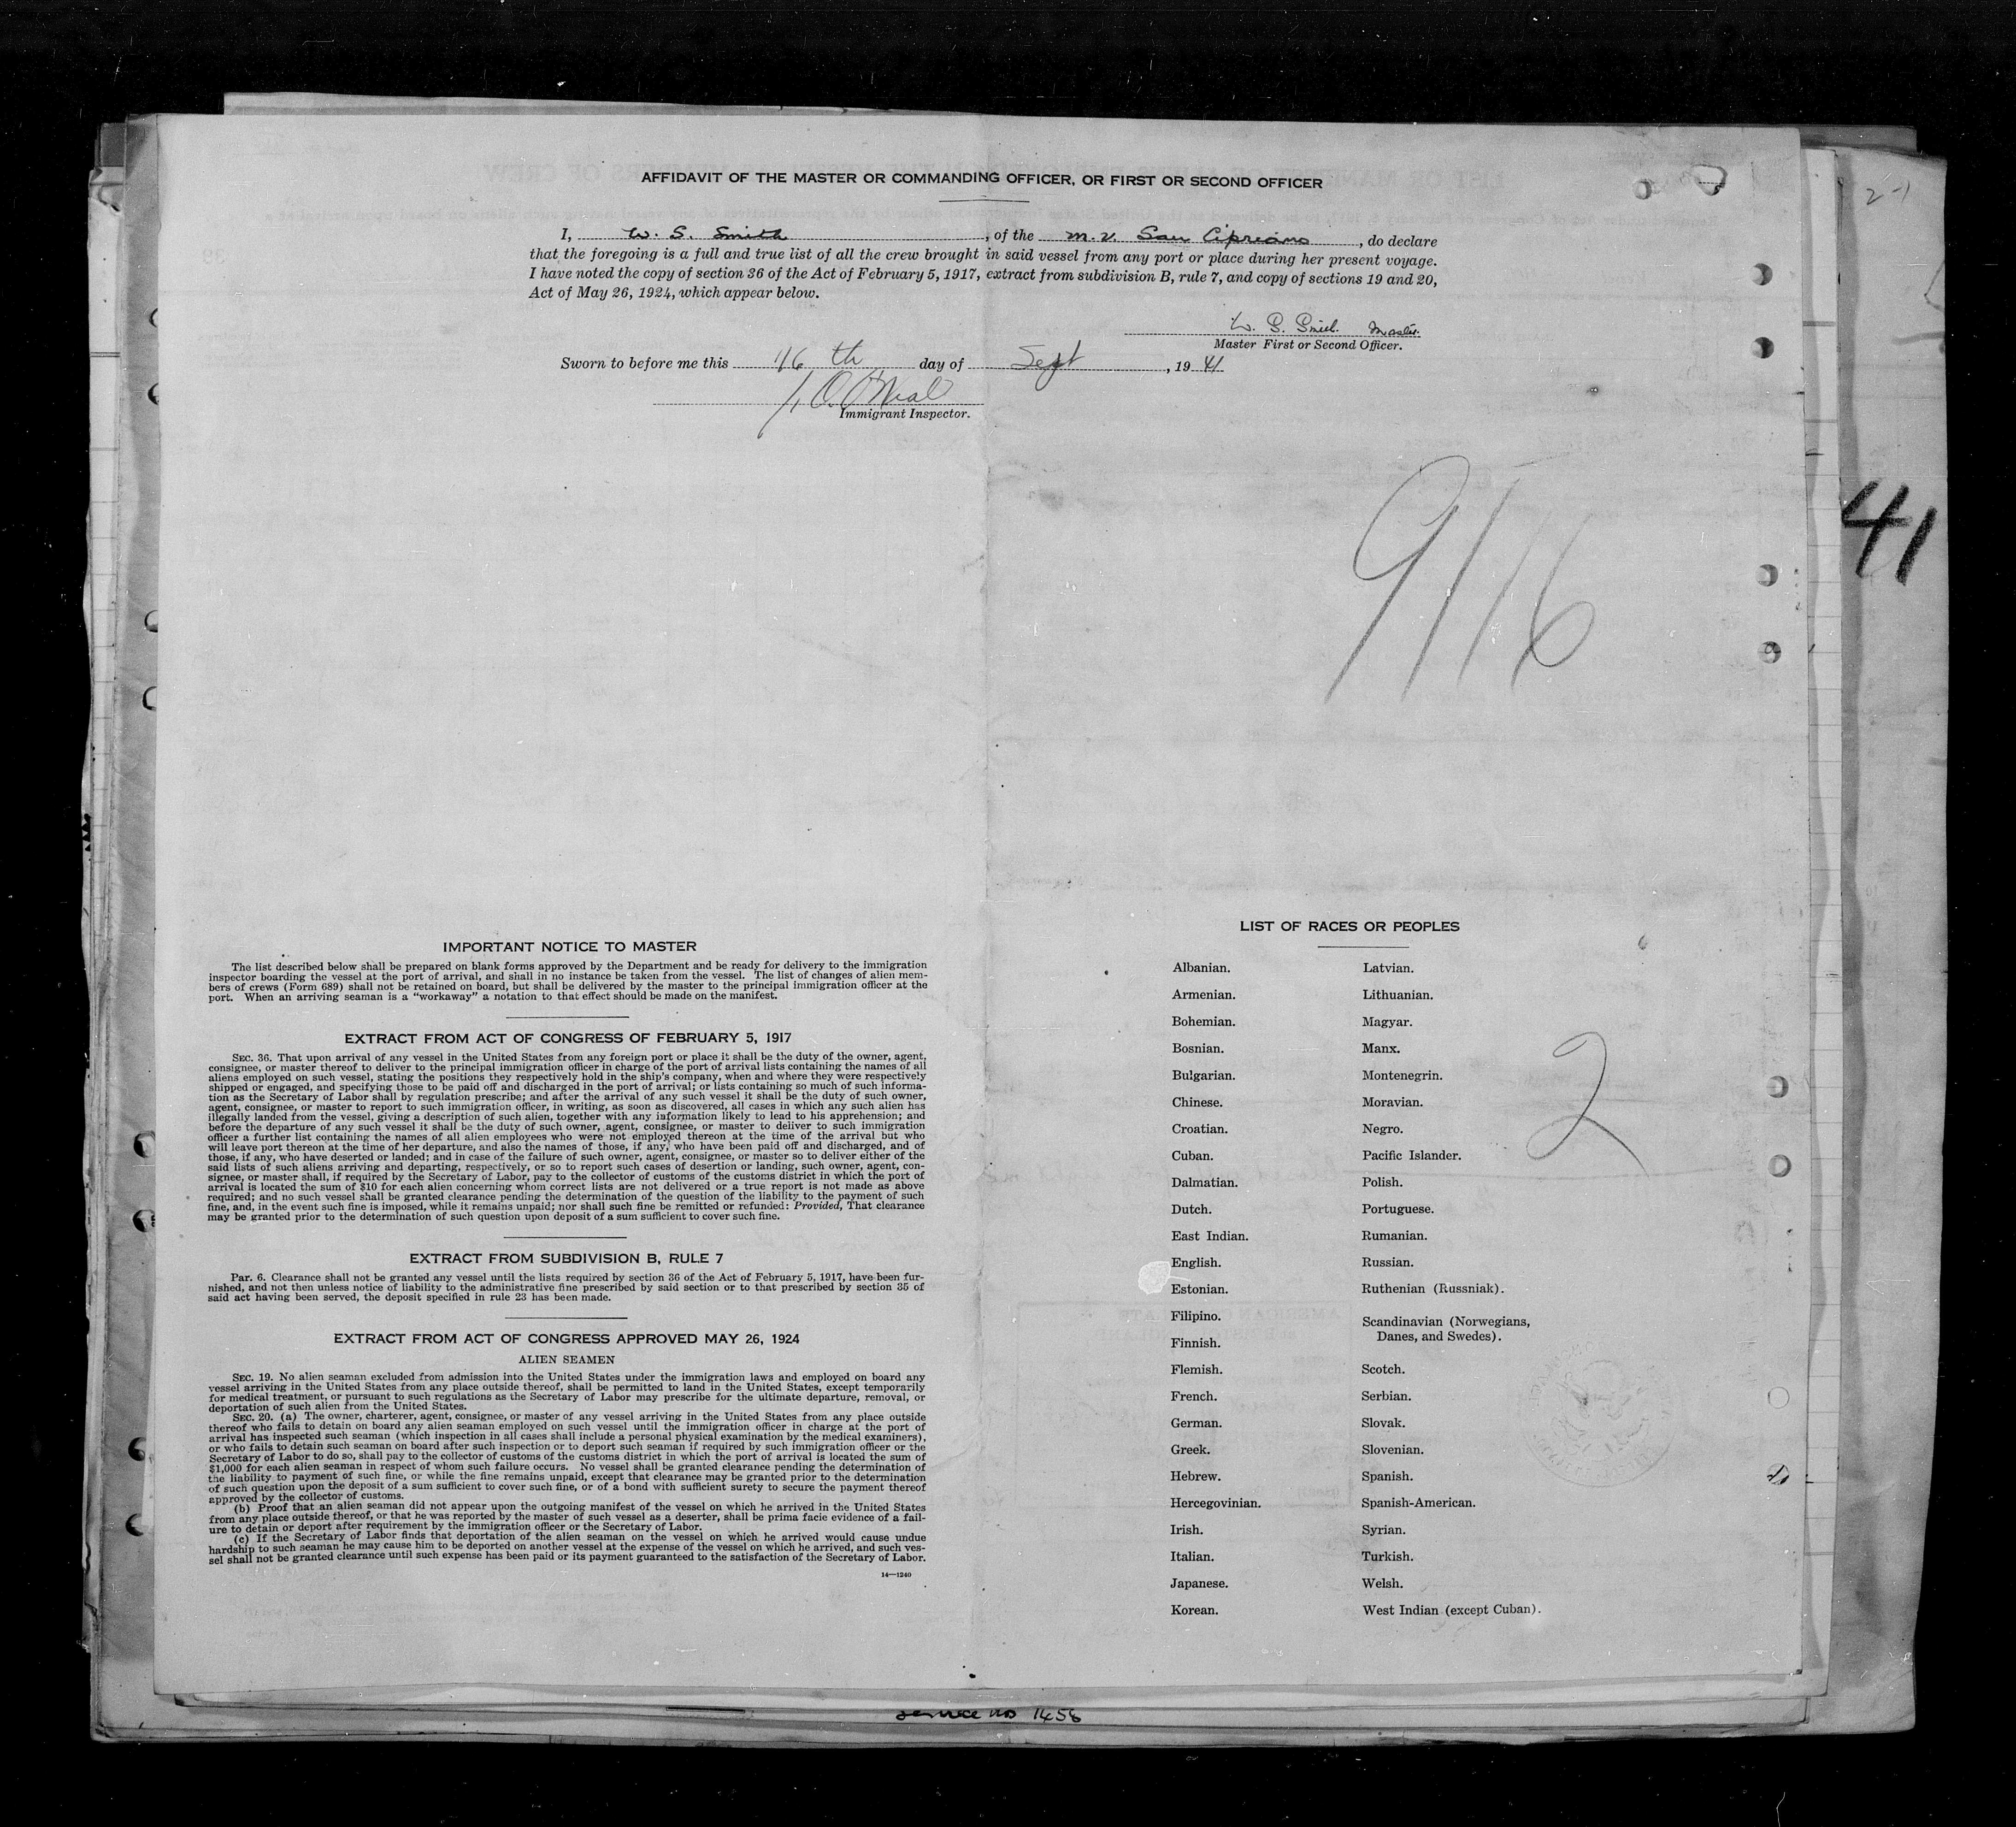 AFFIDAVIT OF THE MASTER OR COMMANDING OFFICER, OR FIRST OR SECOND OFFICER
I, W. S. Smith, of the m.v. San Cipriano, do declare
that the foregoing is a full and true list of all the crew brought in said vessel from any port or place during her present voyage.
I have noted the copy of section 36 of the Act of February 5, 1917, extract from subdivision B, rule 7, and copy of sections 19 and 20,
Act of May 26, 1924, which appear below.
W. S. Smith. Master.
Master First or Second Officer.
Sworn to before me this 16 th day of Sept, 19 41
O'Neal
Immigrant Inspector.
2-1
41
9/16
IMPORTANT NOTICE TO MASTER
The list described below shall be prepared on blank forms approved by the Department and be ready for delivery to the immigration
inspector boarding the vessel at the port of arrival, and shall in no instance be taken from the vessel. The list of changes of alien mem-
bers of crews (Form 689) shall not be retained on board, but shall be delivered by the master to the principal immigration officer at the
port. When an arriving seaman is a "workaway" a notation to that effect should be made on the manifest.
EXTRACT FROM ACT OF CONGRESS OF FEBRUARY 5, 1917
SEC. 36. That upon arrival of any vessel in the United States from any foreign port or place it shall be the duty of the owner, agent,
consignee, or master thereof to deliver to the principal immigration officer in charge of the port of arrival lists containing the names of all
aliens employed on such vessel, stating the positions they respectively hold in the ship's company, when and where they were respectively
shipped or engaged, and specifying those to be paid off and discharged in the port of arrival; or lists containing so much of such informa-
tion as the Secretary of Labor shall by regulation prescribe; and after the arrival of any such vessel it shall be the duty of such owner,
agent, consignee, or master to report to such immigration officer, in writing, as soon as discovered, all cases in which any such alien has
illegally landed from the vessel, giving a description of such alien, together with any information likely to lead to his apprehension; and
before the departure of any such vessel it shall be the duty of such owner, agent, consignee, or master to deliver to such immigration
officer a further list containing the names of all alien employees who were not employed thereon at the time of the arrival but who
will leave port thereon at the time of her departure, and also the names of those, if any, who have been paid off and discharged, and of
those, if any, who have deserted or landed; and in case of the failure of such owner, agent, consignee, or master so to deliver either of the
said lists of such aliens arriving and departing, respectively, or so to report such cases of desertion or landing, such owner, agent, con-
signee, or master shall, if required by the Secretary of Labor, pay to the collector of customs of the customs district in which the port of
arrival is located the sum of $10 for each alien concerning whom correct lists are not delivered or a true report is not made as above
required; and no such vessel shall be granted clearance pending the determination of the question of the liability to the payment of such
fine, and, in the event such fine is imposed, while it remains unpaid; nor shall such fine be remitted or refunded: Provided, That clearance
may be granted prior to the determination of such question upon deposit of a sum sufficient to cover such fine.
EXTRACT FROM SUBDIVISION B, RULE 7
Par. 6. Clearance shall not be granted any vessel until the lists required by section 36 of the Act of February 5, 1917, have been fur-
nished, and not then unless notice of liability to the administrative fine prescribed by said section or to that prescribed by section 35 of
said act having been served, the deposit specified in rule 23 has been made.
EXTRACT FROM ACT OF CONGRESS APPROVED MAY 26, 1924
ALIEN SEAMEN
SEC. 19. No alien seaman excluded from admission into the United States under the immigration laws and employed on board any
vessel arriving in the United States from any place outside thereof, shall be permitted to land in the United States, except temporarily
for medical treatment, or pursuant to such regulations as the Secretary of Labor may prescribe for the ultimate departure, removal, or
deportation of such alien from the United States.
SEC. 20. (a) The owner, charterer, agent, consignee, or master of any vessel arriving in the United States from any place outside
thereof who fails to detain on board any alien seaman employed on such vessel until the immigration officer in charge at the port of
arrival has inspected such seaman (which inspection in all cases shall include a personal physical examination by the medical examiners),
or who fails to detain such seaman on board after such inspection or to deport such seaman if required by such immigration officer or the
Secretary of Labor to do so, shall pay to the collector of customs of the customs district in which the port of arrival is located the sum of
$1,000 for each alien seaman in respect of whom such failure occurs. No vessel shall be granted clearance pending the determination of
the liability to payment of such fine, or while the fine remains unpaid, except that clearance may be granted prior to the determination
of such question upon the deposit of a sum sufficient to cover such fine, or of a bond with sufficient surety to secure the payment thereof
approved by the collector of customs.
(b) Proof that an alien seaman did not appear upon the outgoing manifest of the vessel on which he arrived in the United States
from any place outside thereof, or that he was reported by the master of such vessel as a deserter, shall be prima facie evidence of a fail-
ure to detain or deport after requirement by the immigration officer or the Secretary of Labor.
(c) If the Secretary of Labor finds that deportation of the alien seaman on the vessel on which he arrived would cause undue
hardship to such seaman he may cause him to be deported on another vessel at the expense of the vessel on which he arrived, and such ves-
sel shall not be granted clearance until such expense has been paid or its payment guaranteed to the satisfaction of the Secretary of Labor.
14—1240
LIST OF RACES OR PEOPLES
Albanian.
Armenian.
Bohemian.
Bosnian.
Bulgarian.
Chinese.
Croatian.
Cuban.
Dalmatian.
Dutch.
East Indian.
English.
Estonian.
Filipino.
Finnish.
Flemish.
French.
German.
Greek.
Hebrew.
Hercegovinian.
Irish.
Italian.
Japanese.
Korean.
Latvian.
Lithuanian.
Magyar.
Manx.
Montenegrin.
Moravian.
Negro.
Pacific Islander.
Polish.
Portuguese.
Rumanian.
Russian.
Ruthenian (Russniak).
Scandinavian (Norwegians,
Danes, and Swedes).
Scotch.
Serbian.
Slovak.
Slovenian.
Spanish.
Spanish-American.
Syrian.
Turkish.
Welsh.
West Indian (except Cuban).
2
service no 1456